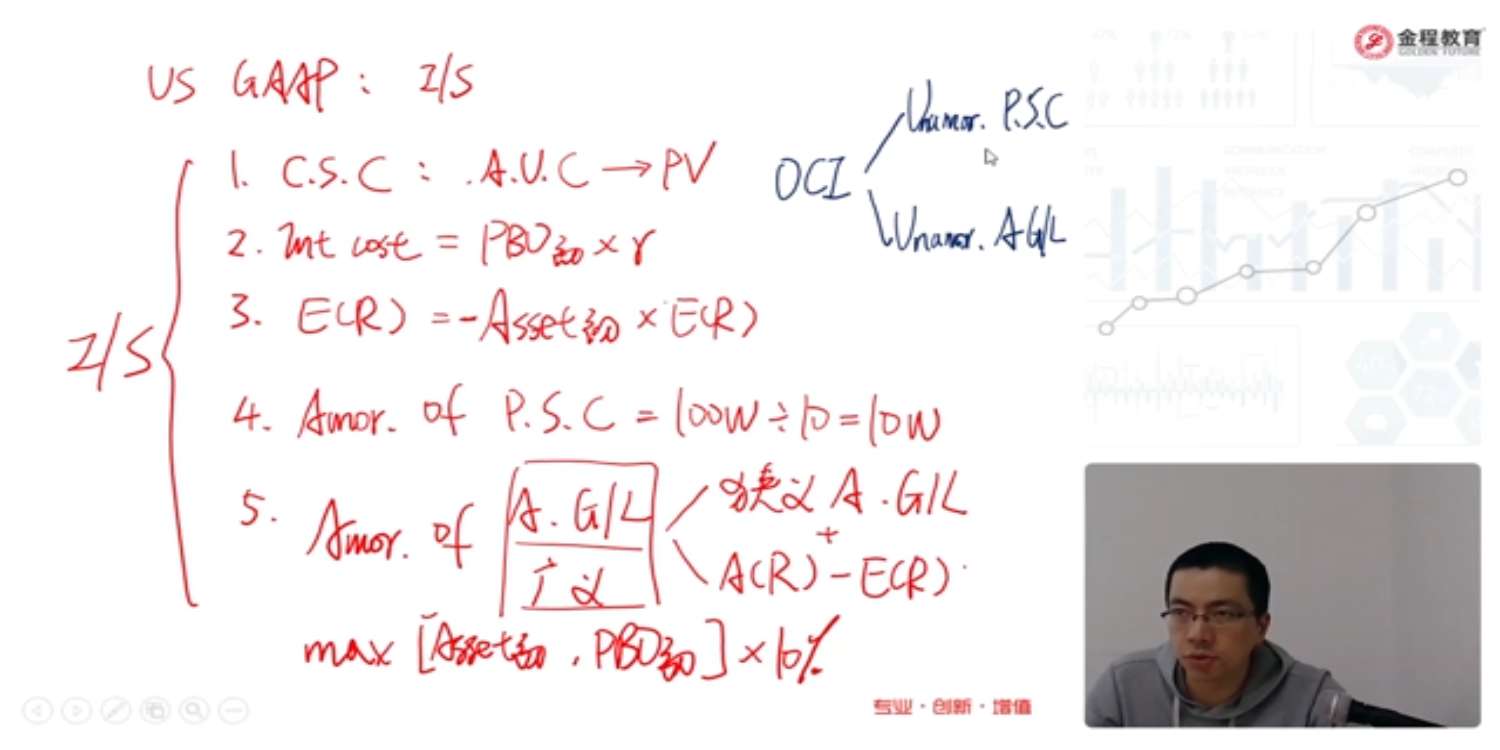 金程教育
GOLDEN FUTURE
US GAAP : I/S
OCI
Unamor. P.S.C
Unamor. A G/L
I/S
1. C.S.C : A.U.C → PV
2. Int cost = PBO初 × r
3. E(R) = -Asset初 × E(R)
4. Amor. of P.S.C = 100W ÷ 10 = 10W
5. Amor. of A. G/L
广义
狭义 A. G/L
+
A(R) - E(R)
max [Asset初, PBO初] × 10%
专业·创新·增值